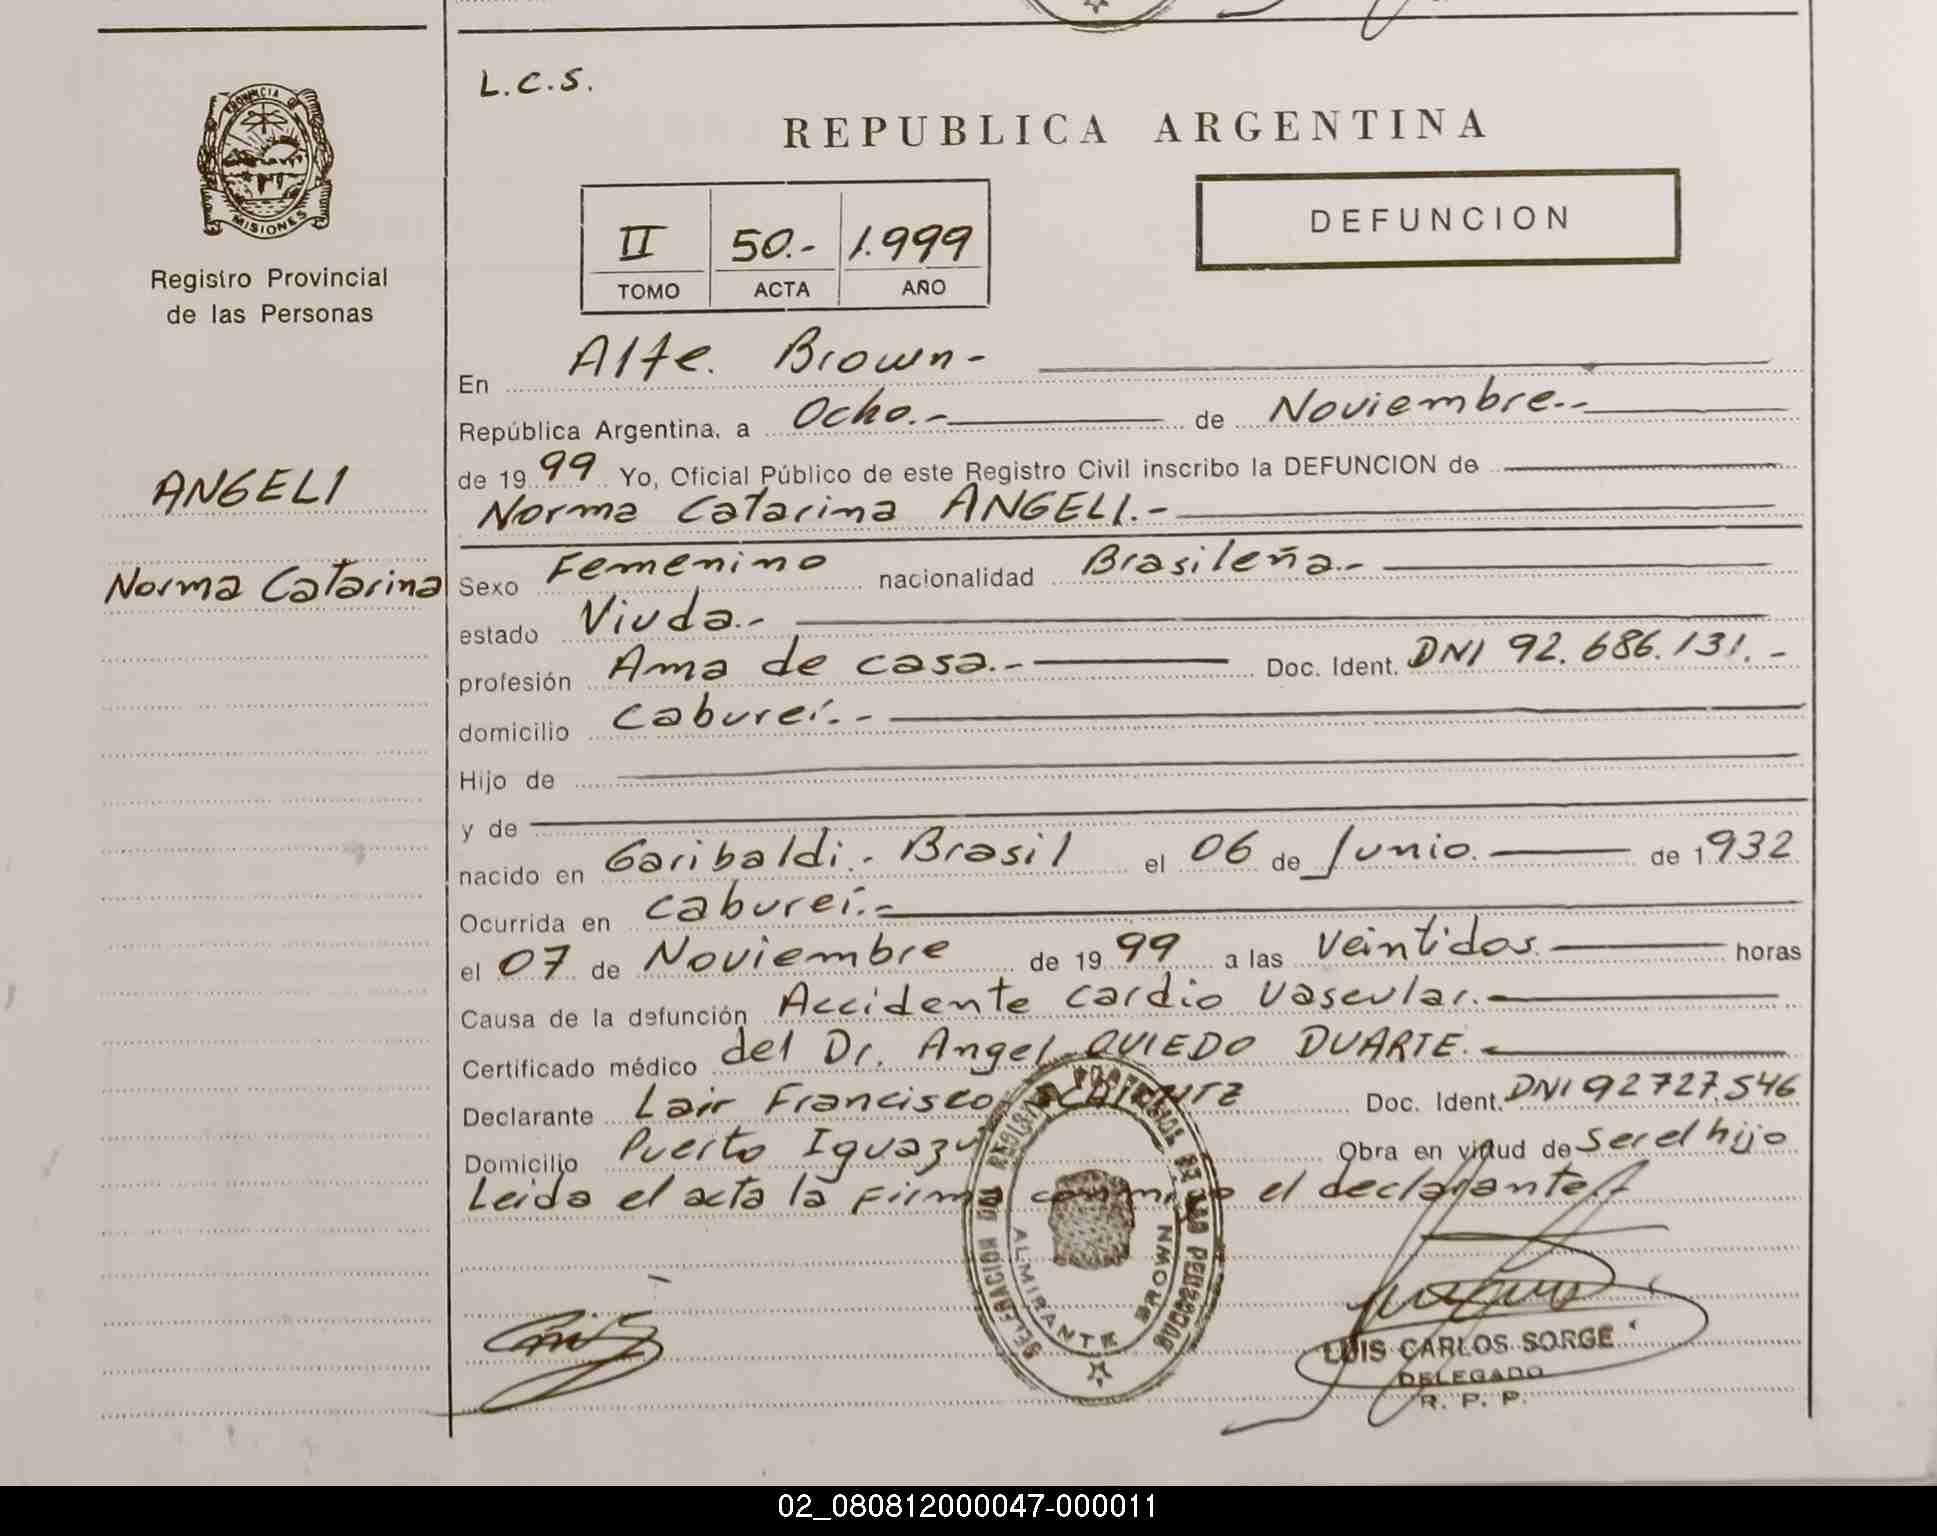 L.C.S.
REPUBLICA ARGENTINA
PROVINCIA DE
MISIONES
Registro Provincial
de las Personas
II 50.- 1.999
TOMO ACTA AÑO
DEFUNCION
ANGELI
Norma Catarina
En Alte. Brown-
República Argentina, a Ocho.- de Noviembre.-
de 1999 Yo, Oficial Público de este Registro Civil inscribo la DEFUNCION de
Norma Catarina ANGELI.-
Sexo Femenino nacionalidad Brasileña.-
estado Viuda.-
profesión Ama de casa.- Doc. Ident. DNI 92.686.131.-
domicilio Cabureí.-
Hijo de
y de
nacido en Garibaldi.- Brasil el 06 de Junio. de 1932
Ocurrida en Cabureí.-
el 07 de Noviembre de 1999 a las Veintidos. horas
Causa de la defunción Accidente cardio Vascular.-
Certificado médico del Dr. Angel OVIEDO DUARTE.-
Declarante Lair Francisco Doc. Ident. DNI 92727.546
Domicilio Puerto Iguazú Obra en virtud de Ser el hijo
Leida el acta la Firma conmigo el declarante
DELEGACION DEL REGISTRO PROVINCIAL DE LAS PERSONAS
ALMIRANTE BROWN
LUIS CARLOS SORGE
DELEGADO
R. P. P.
02_080812000047-000011